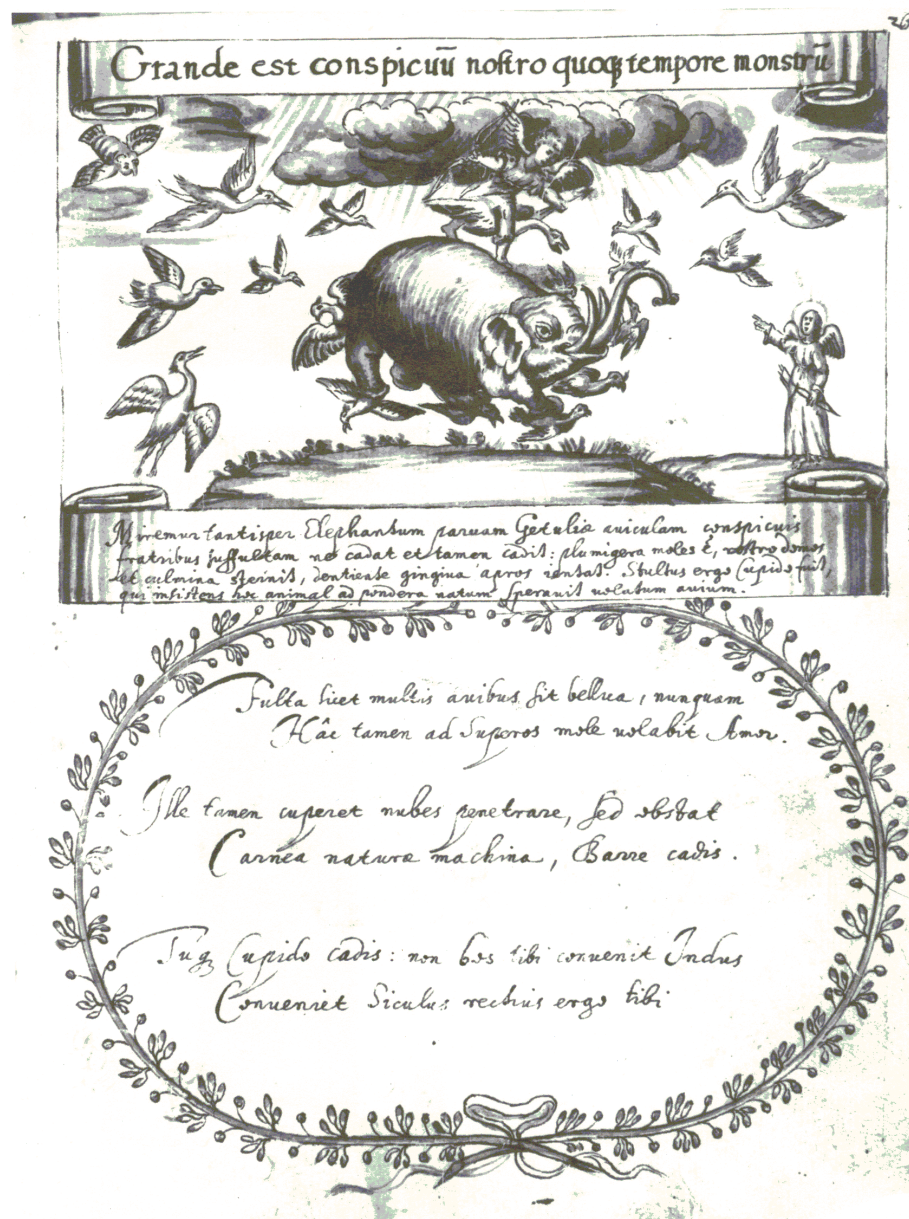 26
Grande est conspicuũ nostro quoqʒ tempore monstrũ
Miremur tantisper Elephantum paruam Getuliæ auiculam conspicuis
fratribus suffultam ne cadat et tamen cadit: plumigera moles ẽ, rostro domos
et culmina sternit, dentiente gingiua apros ientat. Stultus ergo Cupido fuit,
qui insistens hoc animal ad pondera natum speravit uolatum auium.
Fulta licet multis avibus sit bellua, nunquam
Hâc tamen ad Superos mole uolabit Amor.
Ille tamen cuperet nubes penetrare, sed obstat
Carnea naturæ machina, Barre cadis.
Tuqʒ Cupido cadis: non bos tibi conuenit Indus
Conveniet Siculus rectius ergo tibi